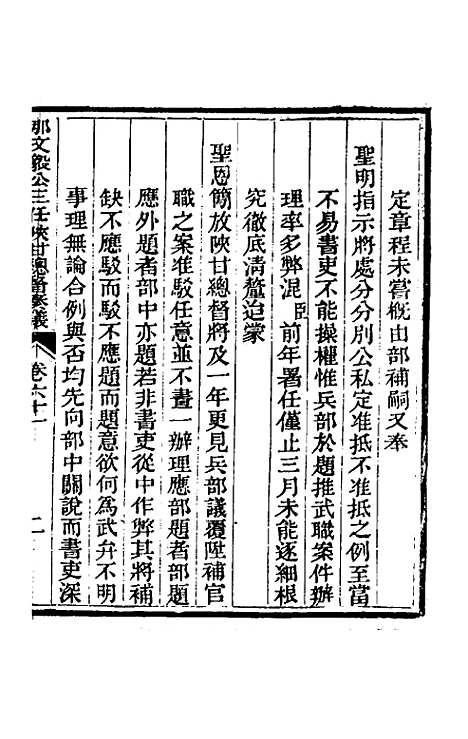 定章程未嘗槪由部補嗣又奉
聖明指示將處分分別公私定准抵不准抵之例至當
不易書吏不能操權惟兵部於題推武職案件辦
理率多弊混臣前年署任僅止三月未能逐細根
究徹底淸釐迨蒙
聖恩簡放陜甘總督將及一年更見兵部議覆陞補官
職之案准駁任意並不畫一辦理應部題者部題
應外題者部中亦題若非書吏從中作弊其將補
缺不應駁而駁不應題而題意欲何為武弁不明
事理無論合例與否均先向部中關說而書吏深
那文毅公三任陜甘總督奏議 卷六十一 二